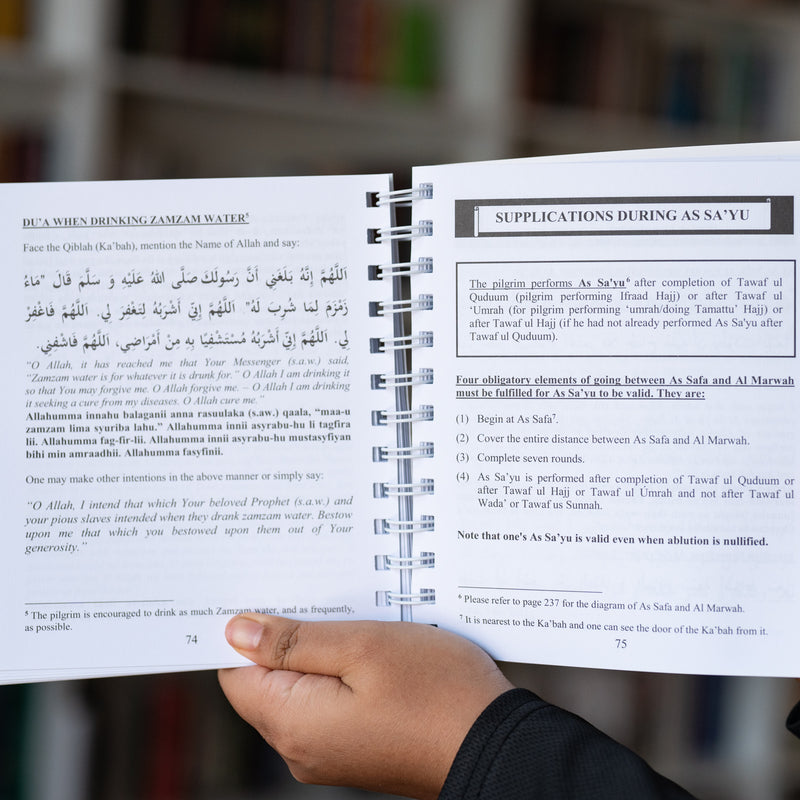 DU'A WHEN DRINKING ZAMZAM WATER⁵
Face the Qiblah (Ka'bah), mention the Name of Allah and say:
اَللَّهُمَّ إِنَّهُ بَلَغَنِي أَنَّ رَسُولَكَ صَلَّى اللهُ عَلَيْهِ وَ سَلَّمَ قَالَ "مَاءُ
زَمْزَمَ لِمَا شُرِبَ لَهُ" اَللَّهُمَّ إِنِّي أَشْرَبُهُ لِتَغْفِرَ لِي. اَللَّهُمَّ فَاغْفِرْ
لِي. اَللَّهُمَّ إِنِّي أَشْرَبُهُ مُسْتَشْفِيًا بِهِ مِنْ أَمْرَاضِي، اَللَّهُمَّ فَاشْفِنِي.
"O Allah, it has reached me that Your Messenger (s.a.w.) said,
"Zamzam water is for whatever it is drunk for." O Allah I am drinking it
so that You may forgive me. O Allah forgive me. – O Allah I am drinking
it seeking a cure from my diseases. O Allah cure me."
Allahumma innahu balaganii anna rasuulaka (s.aw.) qaala, "maa-u
zamzam lima syuriba lahu." Allahumma innii asyrabu-hu li tagfira
lii. Allahumma fag-fir-lii. Allahumma innii asyrabu-hu mustasyfiyan
bihi min amraadhii. Allahumma fasyfinii.
One may make other intentions in the above manner or simply say:
"O Allah, I intend that which Your beloved Prophet (s.a.w.) and
your pious slaves intended when they drank zamzam water. Bestow
upon me that which you bestowed upon them out of Your
generosity."
⁵ The pilgrim is encouraged to drink as much Zamzam water, and as frequently,
as possible.
74
SUPPLICATIONS DURING AS SA'YU
The pilgrim performs As Sa'yu⁶ after completion of Tawaf ul
Quduum (pilgrim performing Ifraad Hajj) or after Tawaf ul
'Umrah (for pilgrim performing 'umrah/doing Tamattu' Hajj) or
after Tawaf ul Hajj (if he had not already performed As Sa'yu after
Tawaf ul Quduum).
Four obligatory elements of going between As Safa and Al Marwah
must be fulfilled for As Sa'yu to be valid. They are:
(1) Begin at As Safa⁷.
(2) Cover the entire distance between As Safa and Al Marwah.
(3) Complete seven rounds.
(4) As Sa'yu is performed after completion of Tawaf ul Quduum or
after Tawaf ul Hajj or Tawaf ul Úmrah and not after Tawaf ul
Wada' or Tawaf us Sunnah.
Note that one's As Sa'yu is valid even when ablution is nullified.
⁶ Please refer to page 237 for the diagram of As Safa and Al Marwah.
⁷ It is nearest to the Ka'bah and one can see the door of the Ka'bah from it.
75